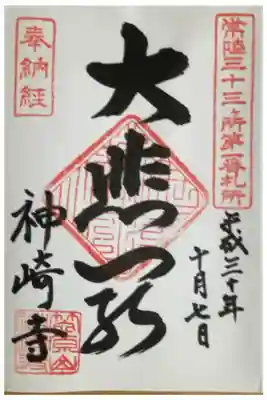 常陸三十三ヶ所第一番札所
平成三十年
十月七日
奉納経
大悲殿
神崎寺